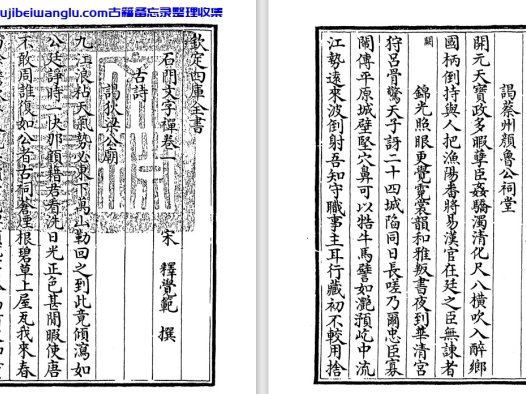 ujibeiwanglu.com古籍备忘录整理收集
欽定四庫全書
石門文字禪卷一
宋 釋覺範 撰
古詩
謁狄梁公廟
九江浪粘天氣勢必東下萬山勒回之到此竟傾瀉如
公廷諍時一快那顧藉君看洗日光正色甚閒暇使唐
不敢周誰復如公者古祠蒼煙根碧草上屋瓦我來春
謁蔡州顏魯公祠堂
開元天寶政多暇孽臣姦驕濁清化尺八橫吹入醉鄉
國柄倒持與人把漁陽番將易漢官在廷之臣無諫者
闕 錦光照眼更覺霓裳韻和雅叛書夜到華清宮
狩呂骨驚天子訝二十四城陷同日長嗟乃爾忠臣寡
閙傳平原城壁堅穴鼻可以牿牛馬譬如灧預屹中流
江勢遠來波倒射吾知守職事主耳行藏初不較用捨